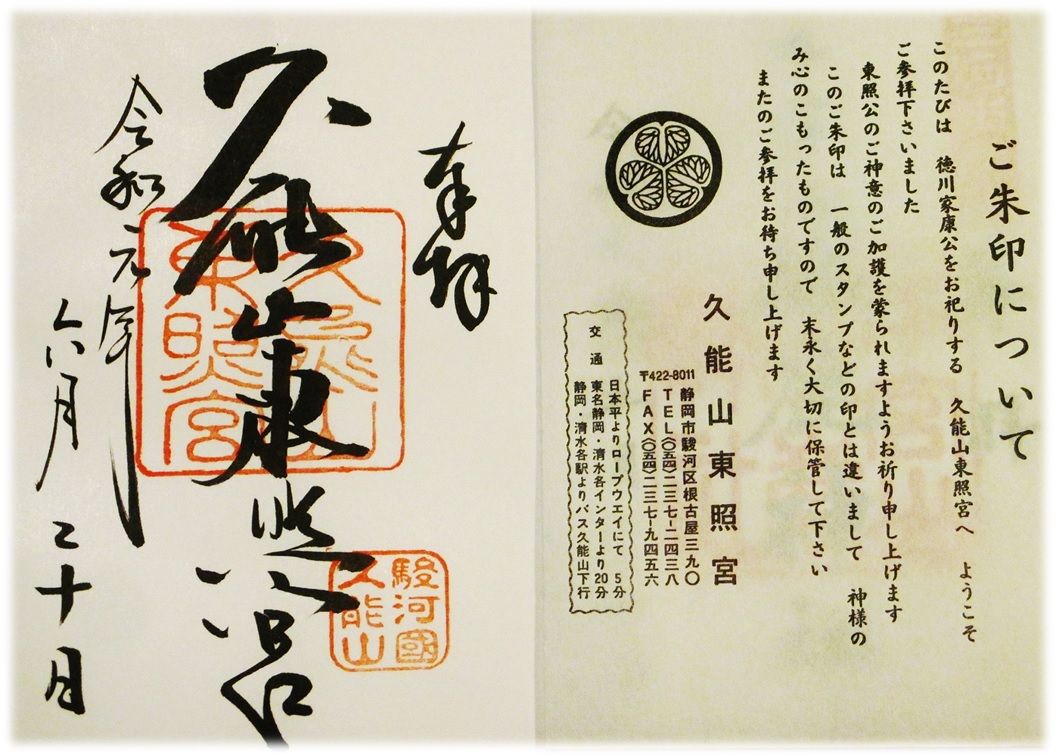 ご朱印について
このたびは 徳川家康公をお祀りする 久能山東照宮へ ようこそ
ご参拝下さいました
東照公のご神意のご加護を蒙られますようお祈り申し上げます
このご朱印は 一般のスタンプなどの印とは違いまして 神様の
み心のこもったものですので 末永く大切に保管して下さい
またのご参拝をお待ち申し上げます
久能山東照宮
〒422-8011 静岡市駿河区根古屋三九〇
TEL(〇五四)二三七-二四三八
FAX(〇五四)二三七-九四五六
交通
日本平よりロープウエイにて 5分
東名静岡・清水各インターより20分
静岡・清水各駅よりバス久能山下行
奉拝
久能山東照宮
久能山
東照宮
駿河國
久能山
令和元年
六月二十日